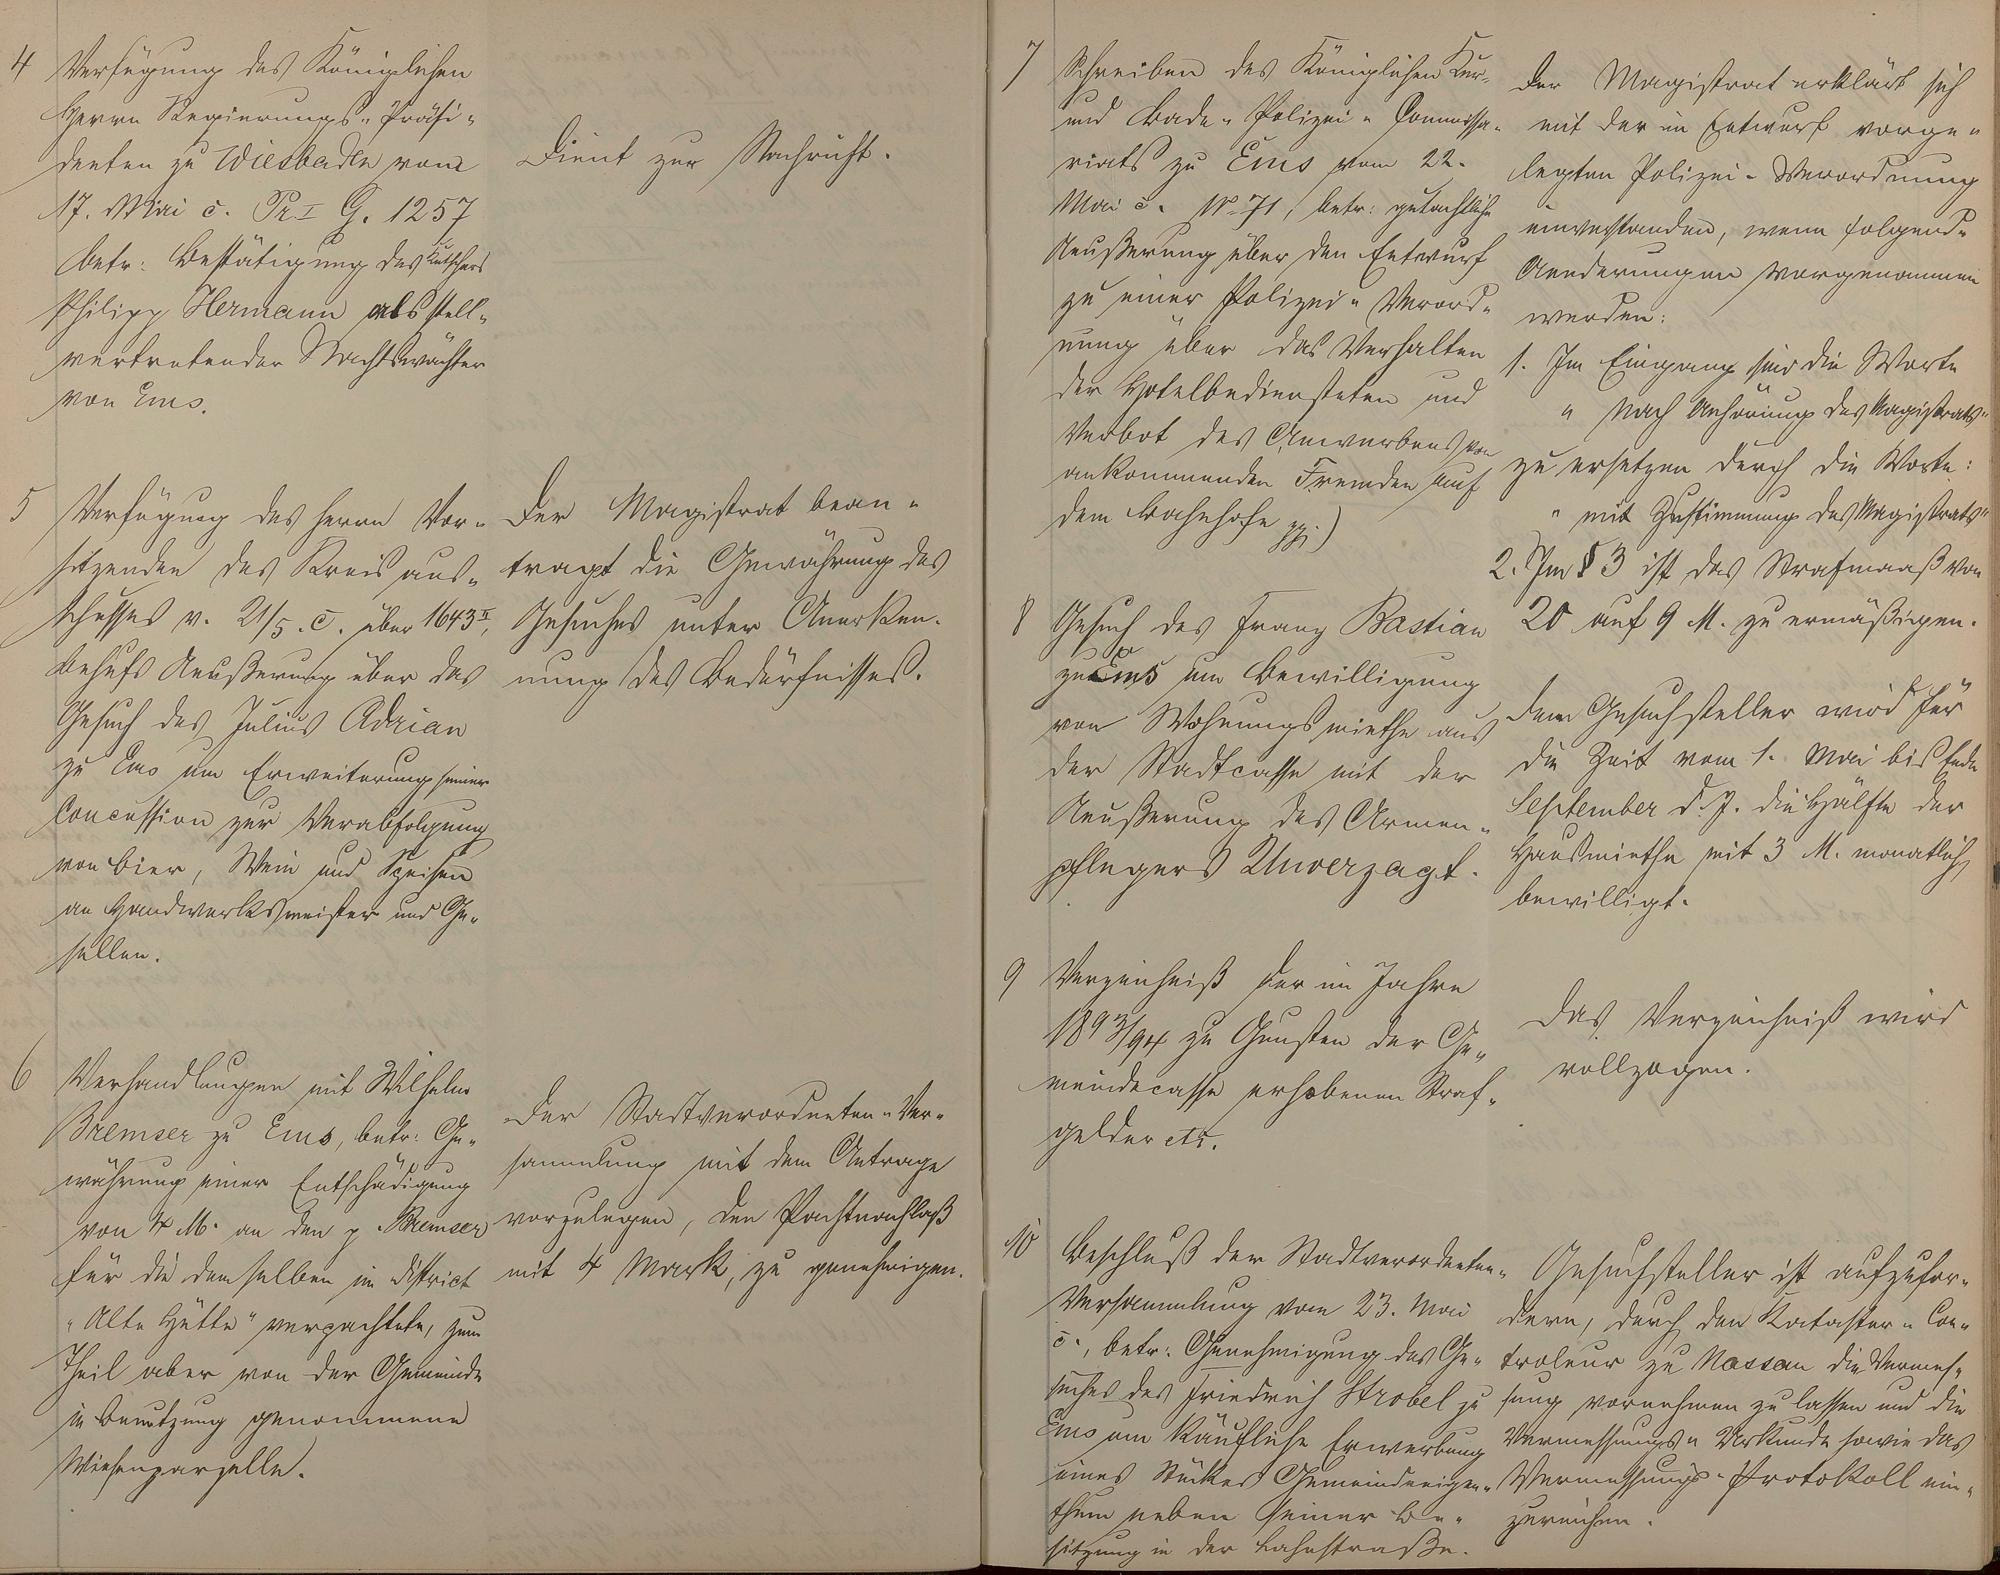 4 Verfügung des Königlichen
Herrn Regierungs-Präsi-
denten zu Wiesbaden vom
17. Mai c. Pr I G. 1257
betr: Bestätigung des Kutschers
Philipp Hermann als stell-
vertretender Nachtswächter
von Ems.
Dient zur Nachricht.
5 Verfügung des Herrn Vor-
sitzenden des Kreisaus-
schusses v. 21/5. c. über 1643 II,
behufs Aeußerung über das
Gesuch des Julius Adrian
zu Ems um Erweiterung seiner
Concession zur Verabfolgung
von Bier, Wein und Speisen
an Handwerksmeister und Ge-
sellen.
Der Magistrat bean-
tragt die Gewährung des
Gesuches unter Anerken-
nung des Bedürfnisses.
6 Verhandlungen mit Wilhelm
Bremser zu Ems, betr: Ge-
währung einer Entschädigung
von 4 M. an den p. Bremser
für die demselben im District
"Alte Hütte" verpachtete, zum
Theil aber von der Gemeinde
in Benutzung genommene
Wiesenparzelle.
Der Stadtverordneten-Ver-
sammlung mit dem Antrage
vorzulegen, den Pachtnachlaß
mit 4 Mark, zu genehmigen.
7 Schreiben des Königlichen Kur-
und Bade-Polizei-Commissa-
riats zu Ems vom 22.
Mai c. No 71, betr: gutachtliche
Aeußerung über den Entwurf
zu einer Polizei-Verord-
nung über das Verhalten
der Hotelbediensteten und
Verbot des Anwerbens von
ankommenden Fremden auf
dem Bahnhofe pp.)
Der Magistrat erklärt sich
mit der im Entwurf vorge-
legten Polizei-Verordnung
einverstanden, wenn folgende
Aenderungen vorgenommen
werden:
1. Im Eingang sind die Worte
"nach Anhörung des Magistrats"
zu ersetzen durch die Worte:
"mit Zustimmung des Magistrats"
2. Im § 3 ist das Strafmaaß von
20 auf 9 M. zu ermäßigen.
8 Gesuch des Franz Bastian
zu Ems um Bewilligung
von Wohnungsmiethe aus
der Stadtcasse mit der
Aeußerung des Armen-
pflegers Unverzagt.
Dem Gesuchsteller wird für
die Zeit vom 1. Mai bis Ende
September d. J. die Hälfte der
Hausmiethe mit 3 M. monatlich
bewilligt.
9 Verzeichniß der im Jahre
1893/94 zu Gunsten der Ge-
meindecasse erhobenen Straf-
gelder etc.
Das Verzeichniß wird
vollzogen.
10 Beschluß der Stadtverordneten-
Versammlung vom 23. Mai
c., betr: Genehmigung des Ge-
suches des Friedrich Strobel zu
Ems um käufliche Erwerbung
eines Stückes Gemeindeeigen-
thum neben seiner Be-
sitzung in der Lahnstraße.
Gesuchsteller ist aufzufor-
dern, durch den Kataster-Con-
troleur zu Nassau die Vermes-
sung vornehmen zu lassen und die
Vermessungs-Urkunde sowie das
Vermessungs-Protokoll ein-
zureichen.